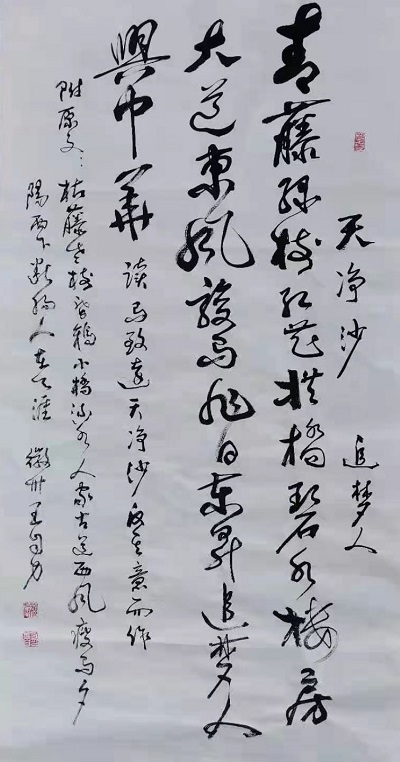 天净沙 追梦人
青藤绿树红花拱橋碧水楼房
大道東風骏马旭日东昇追梦人
興中華 读马致遠天净沙反其意而作
附原文：枯藤老树昏鸦小橋流水人家古道西风瘦马夕
陽西下断肠人在天涯 徽州王自力